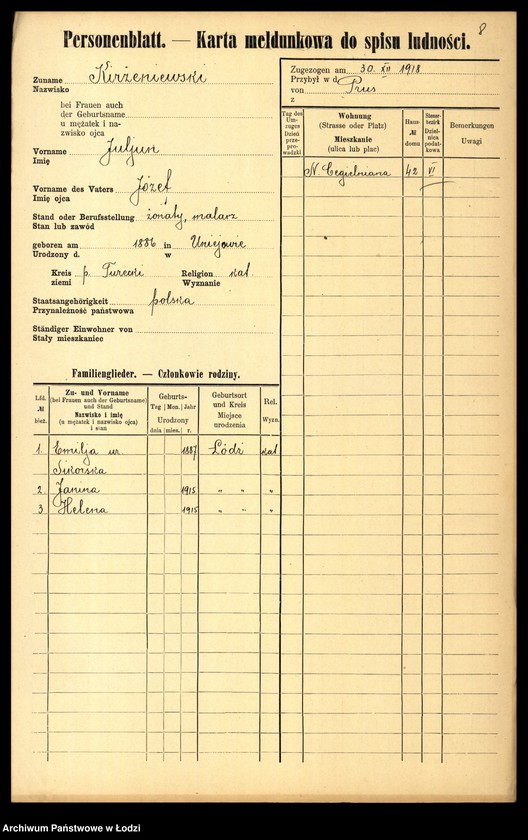 8
Personenblatt. — Karta meldunkowa do spisu ludności.
Zuname
Nazwisko
bei Frauen auch
der Geburtsname
u mężatek i na-
zwisko ojca
Vorname Juljan
Imię
Vorname des Vaters Józef
Imię ojca
Stand oder Berufsstellung żonaty, malarz
Stan lub zawód
geboren am 1886 in Uniejowie
Urodzony d. w
Kreis p. Turecki Religion kat.
ziemi Wyznanie
Staatsangehörigkeit polska
Przynależność państwowa
Ständiger Einwohner von
Stały mieszkaniec
Zugezogen am 30. XII 1918
Przybył w d.
von Prus
z
Tag des Um-zuges Dzień prze-pro-wadzki
Wohnung
(Strasse oder Platz)
Mieszkanie
(ulica lub plac)
Haus- № domu
Steuer-bezirk Dziel-nica podat-kowa
Bemerkungen
Uwagi
N. Cegielniana 42 VI
Familienglieder. — Członkowie rodziny.
Lfd. № bież.
Zu- und Vorname
(bei Frauen auch der Geburtsname)
und Stand
Nazwisko i imię
(u mężatek i nazwisko ojca)
i stan
Geburts-
Tag Mon. Jahr
Urodzony
dnia mies. r.
Geburtsort
und Kreis
Miejsce
urodzenia
Rel.
Wyzn.
1. Emilja ur. 1887 Łódź kat
Sikorska
2. Janina 1915 " " "
3 Helena 1915 " " "
Archiwum Państwowe w Łodzi